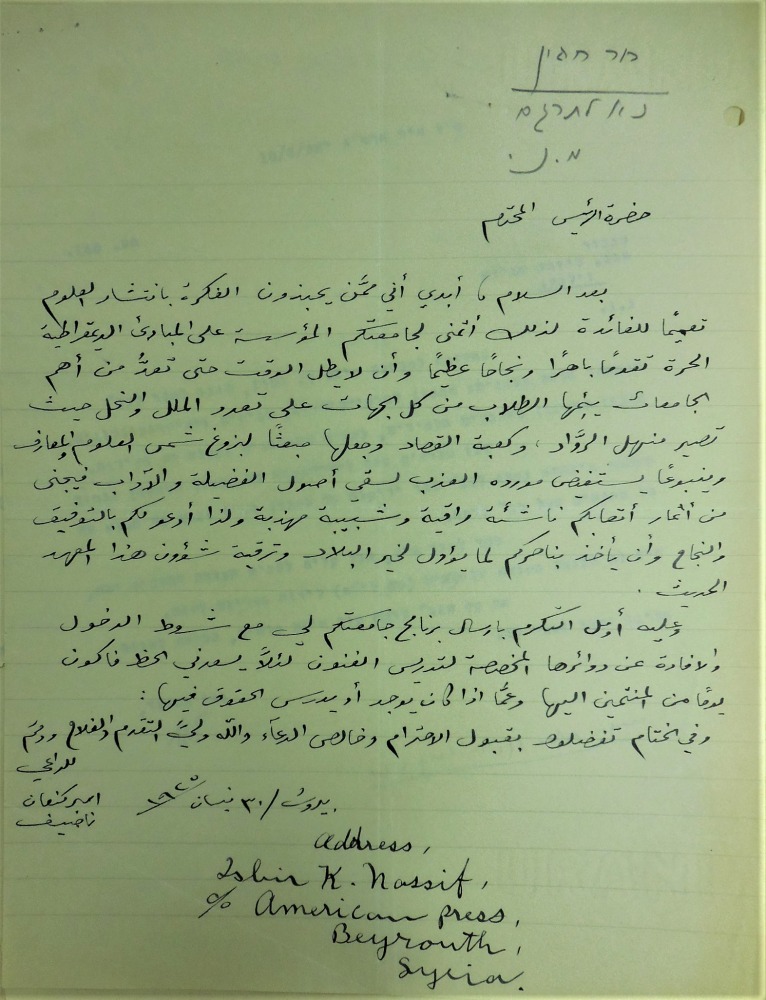 נא לתרגם
מ.
حضرة الرئيس المحترم
بعد السلام أبدي أني ممَّن يحبذون الفكرة بانتشار العلوم
تعميمًا للفائدة لذلك أتمنى لجامعتكم المؤسسة على المبادئ الديمقراطية
الحرة تقدومًا باهرًا ونجاحًا عظيمًا وأن لا يطل الوقت حتى تعدَّ من أهم
الجامعات يئمها الطلاب من كل الجهات على تعدد الملل والنحل حيث
تصير منهل الروَّاد، وكعبة القصاد وجعلها مبعثًا لبزوغ شمس العلوم والمعارف
وينبوعًا يستفيض مورده العذب لسقي أصول الفضيلة والآداب فيجنى
من أثمار أتعابكم ناشئة راقية وشبيبة مهذبة ولذا أدعو لكم بالتوفيق
والنجاح وأن يأخذ بناصركم لما يؤول لخير البلاد وترقية شؤون هذا المعهد
الحديث.
وعليه أؤمل التكرم بارسال برنامج جامعتكم لي مع شروط الدخول
والافادة عن دوائرها المخصصة لتدريس الفنون لئلاَّ يسعدني الحظ فاكون
يومًا من المنتمين اليها وعمَّا اذا كان يوجد أو يدرس الحقوق فيها:
وفي الختام تفضلوا بقبول الاحترام وخالص الدعاء والله وليّ التقدم والفلاح ودمتم
للداعي
بيروت / ٣٠ نيسان ١٩٢٥
اسبر كنعان
ناصيف
address,
Isbir K. Nassif,
c/o American press,
Beyrouth,
Syria.